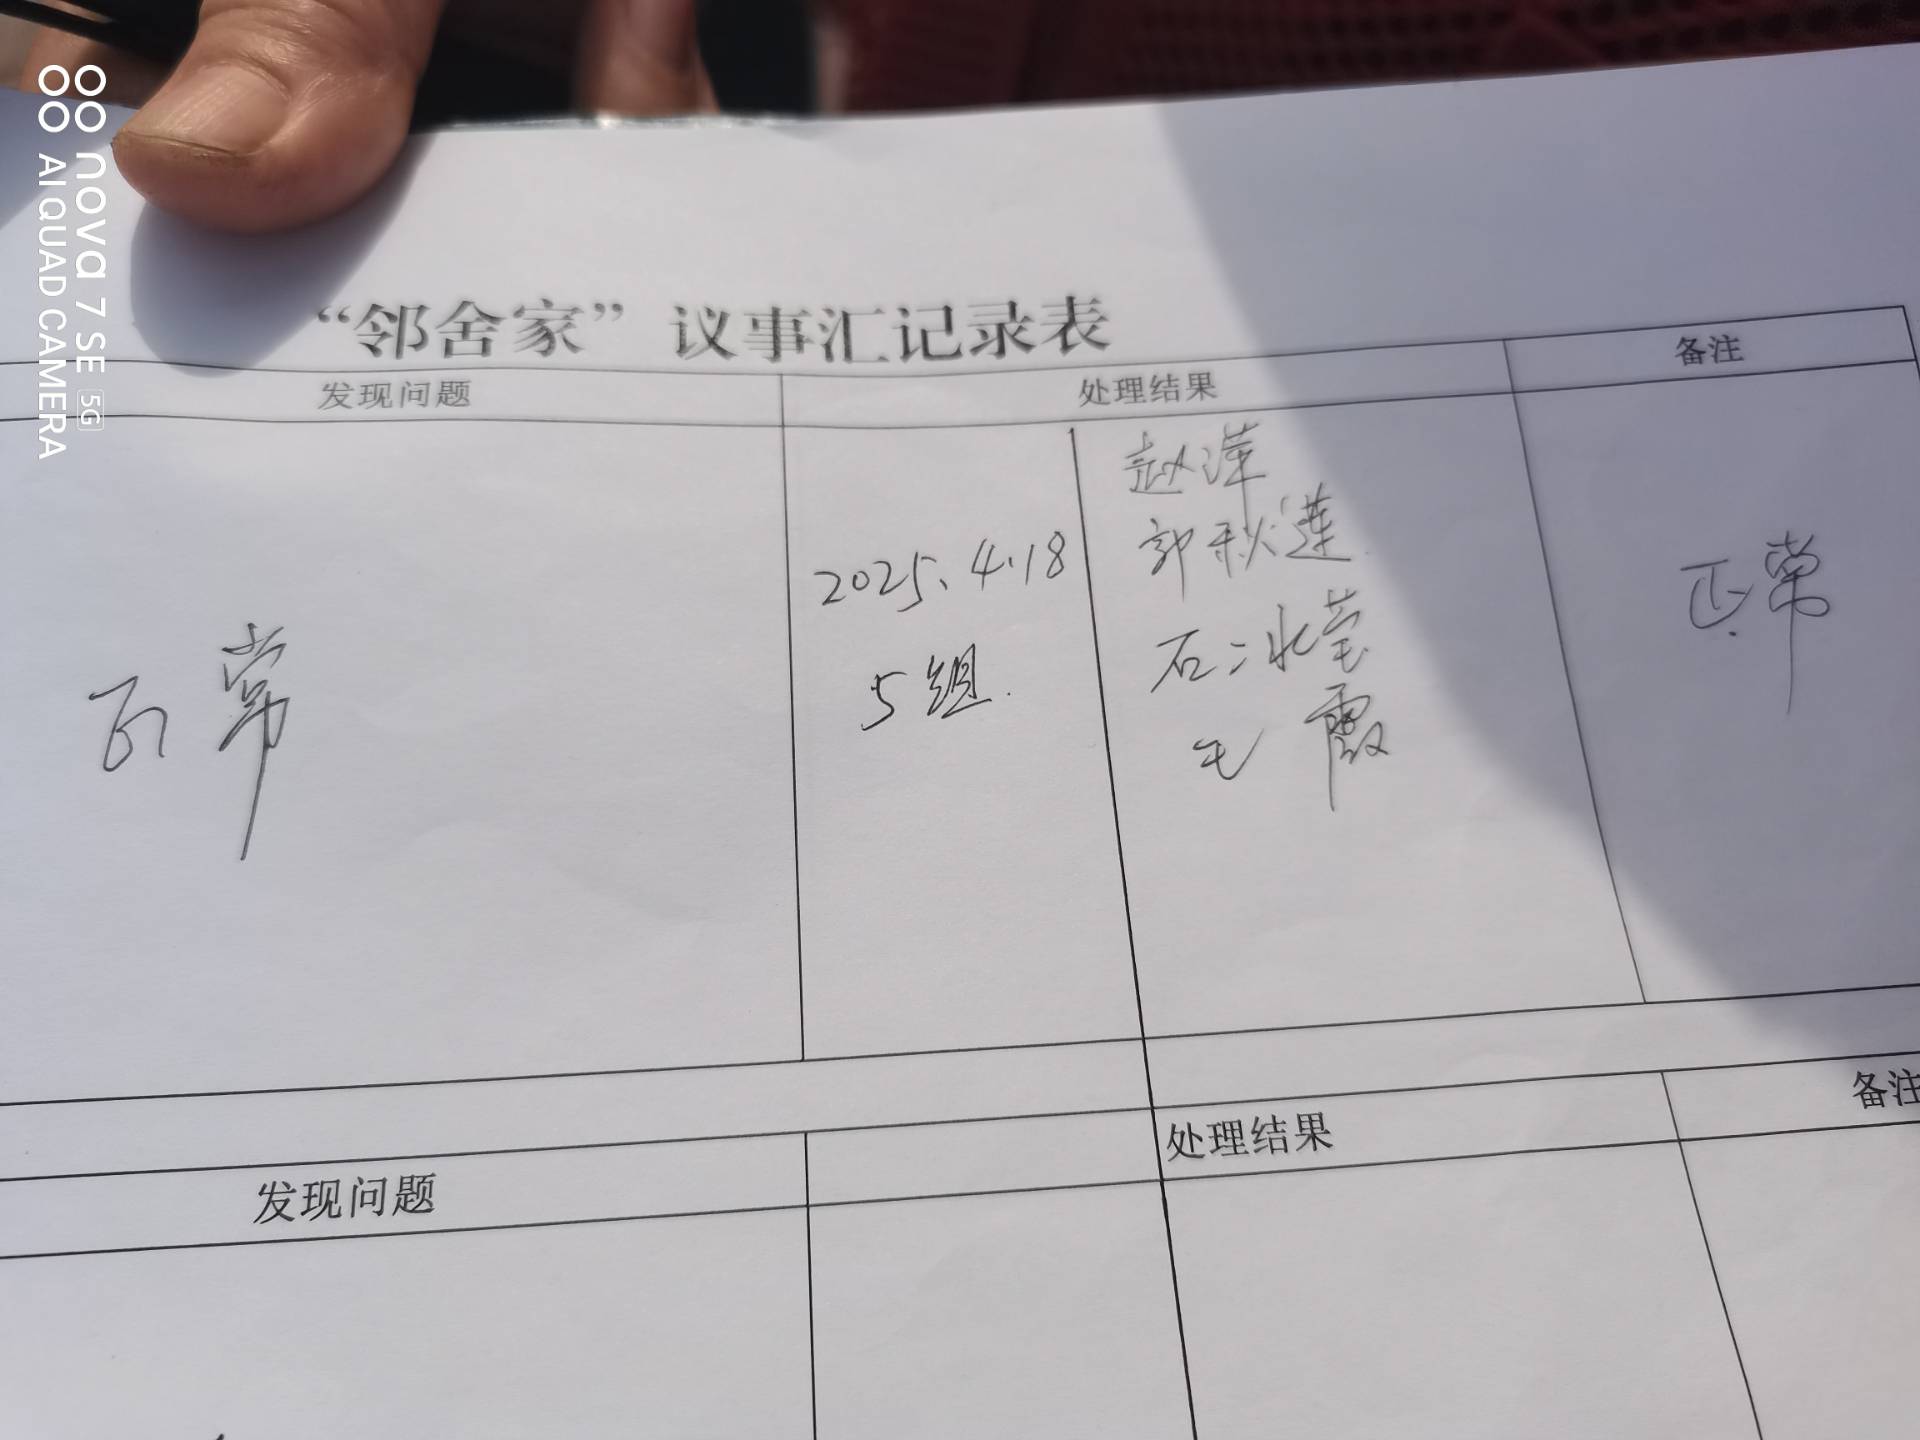 nova 7 SE 5G
AI QUAD CAMERA
“邻舍家”议事汇记录表
发现问题 处理结果 备注
正常 2025.4.18 赵萍 正常
5组 郭秋莲
毛霞
发现问题 处理结果 备注